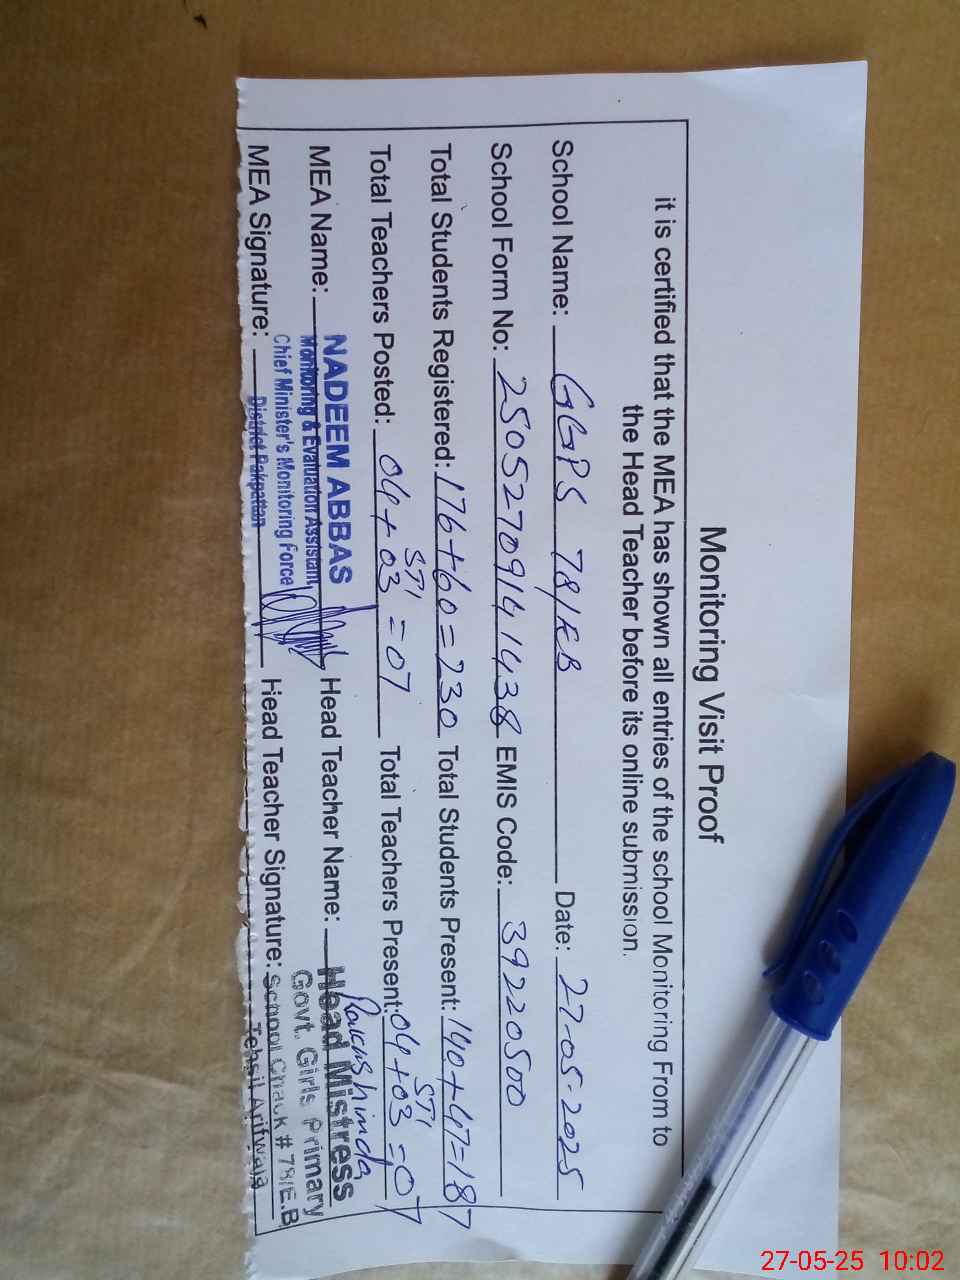 Monitoring Visit Proof
it is certified that the MEA has shown all entries of the school Monitoring From to
the Head Teacher before its online submission.
School Name: GGPS 78/EB Date: 27-05-2025
School Form No: 25052709141438 EMIS Code: 39220500
Total Students Registered: 176+60=230 Total Students Present: 140+47=187
STI STI
Total Teachers Posted: 04+03=07 Total Teachers Present: 04+03=07
MEA Name: NADEEM ABBAS Head Teacher Name: Head Mistress
Monitoring & Evaluation Assistant
Chief Minister's Monitoring Force Govt. Girls Primary
MEA Signature: District Pakpattan Head Teacher Signature: School Chack # 78/E.B
Tehsil Arifwala
27-05-25 10:02